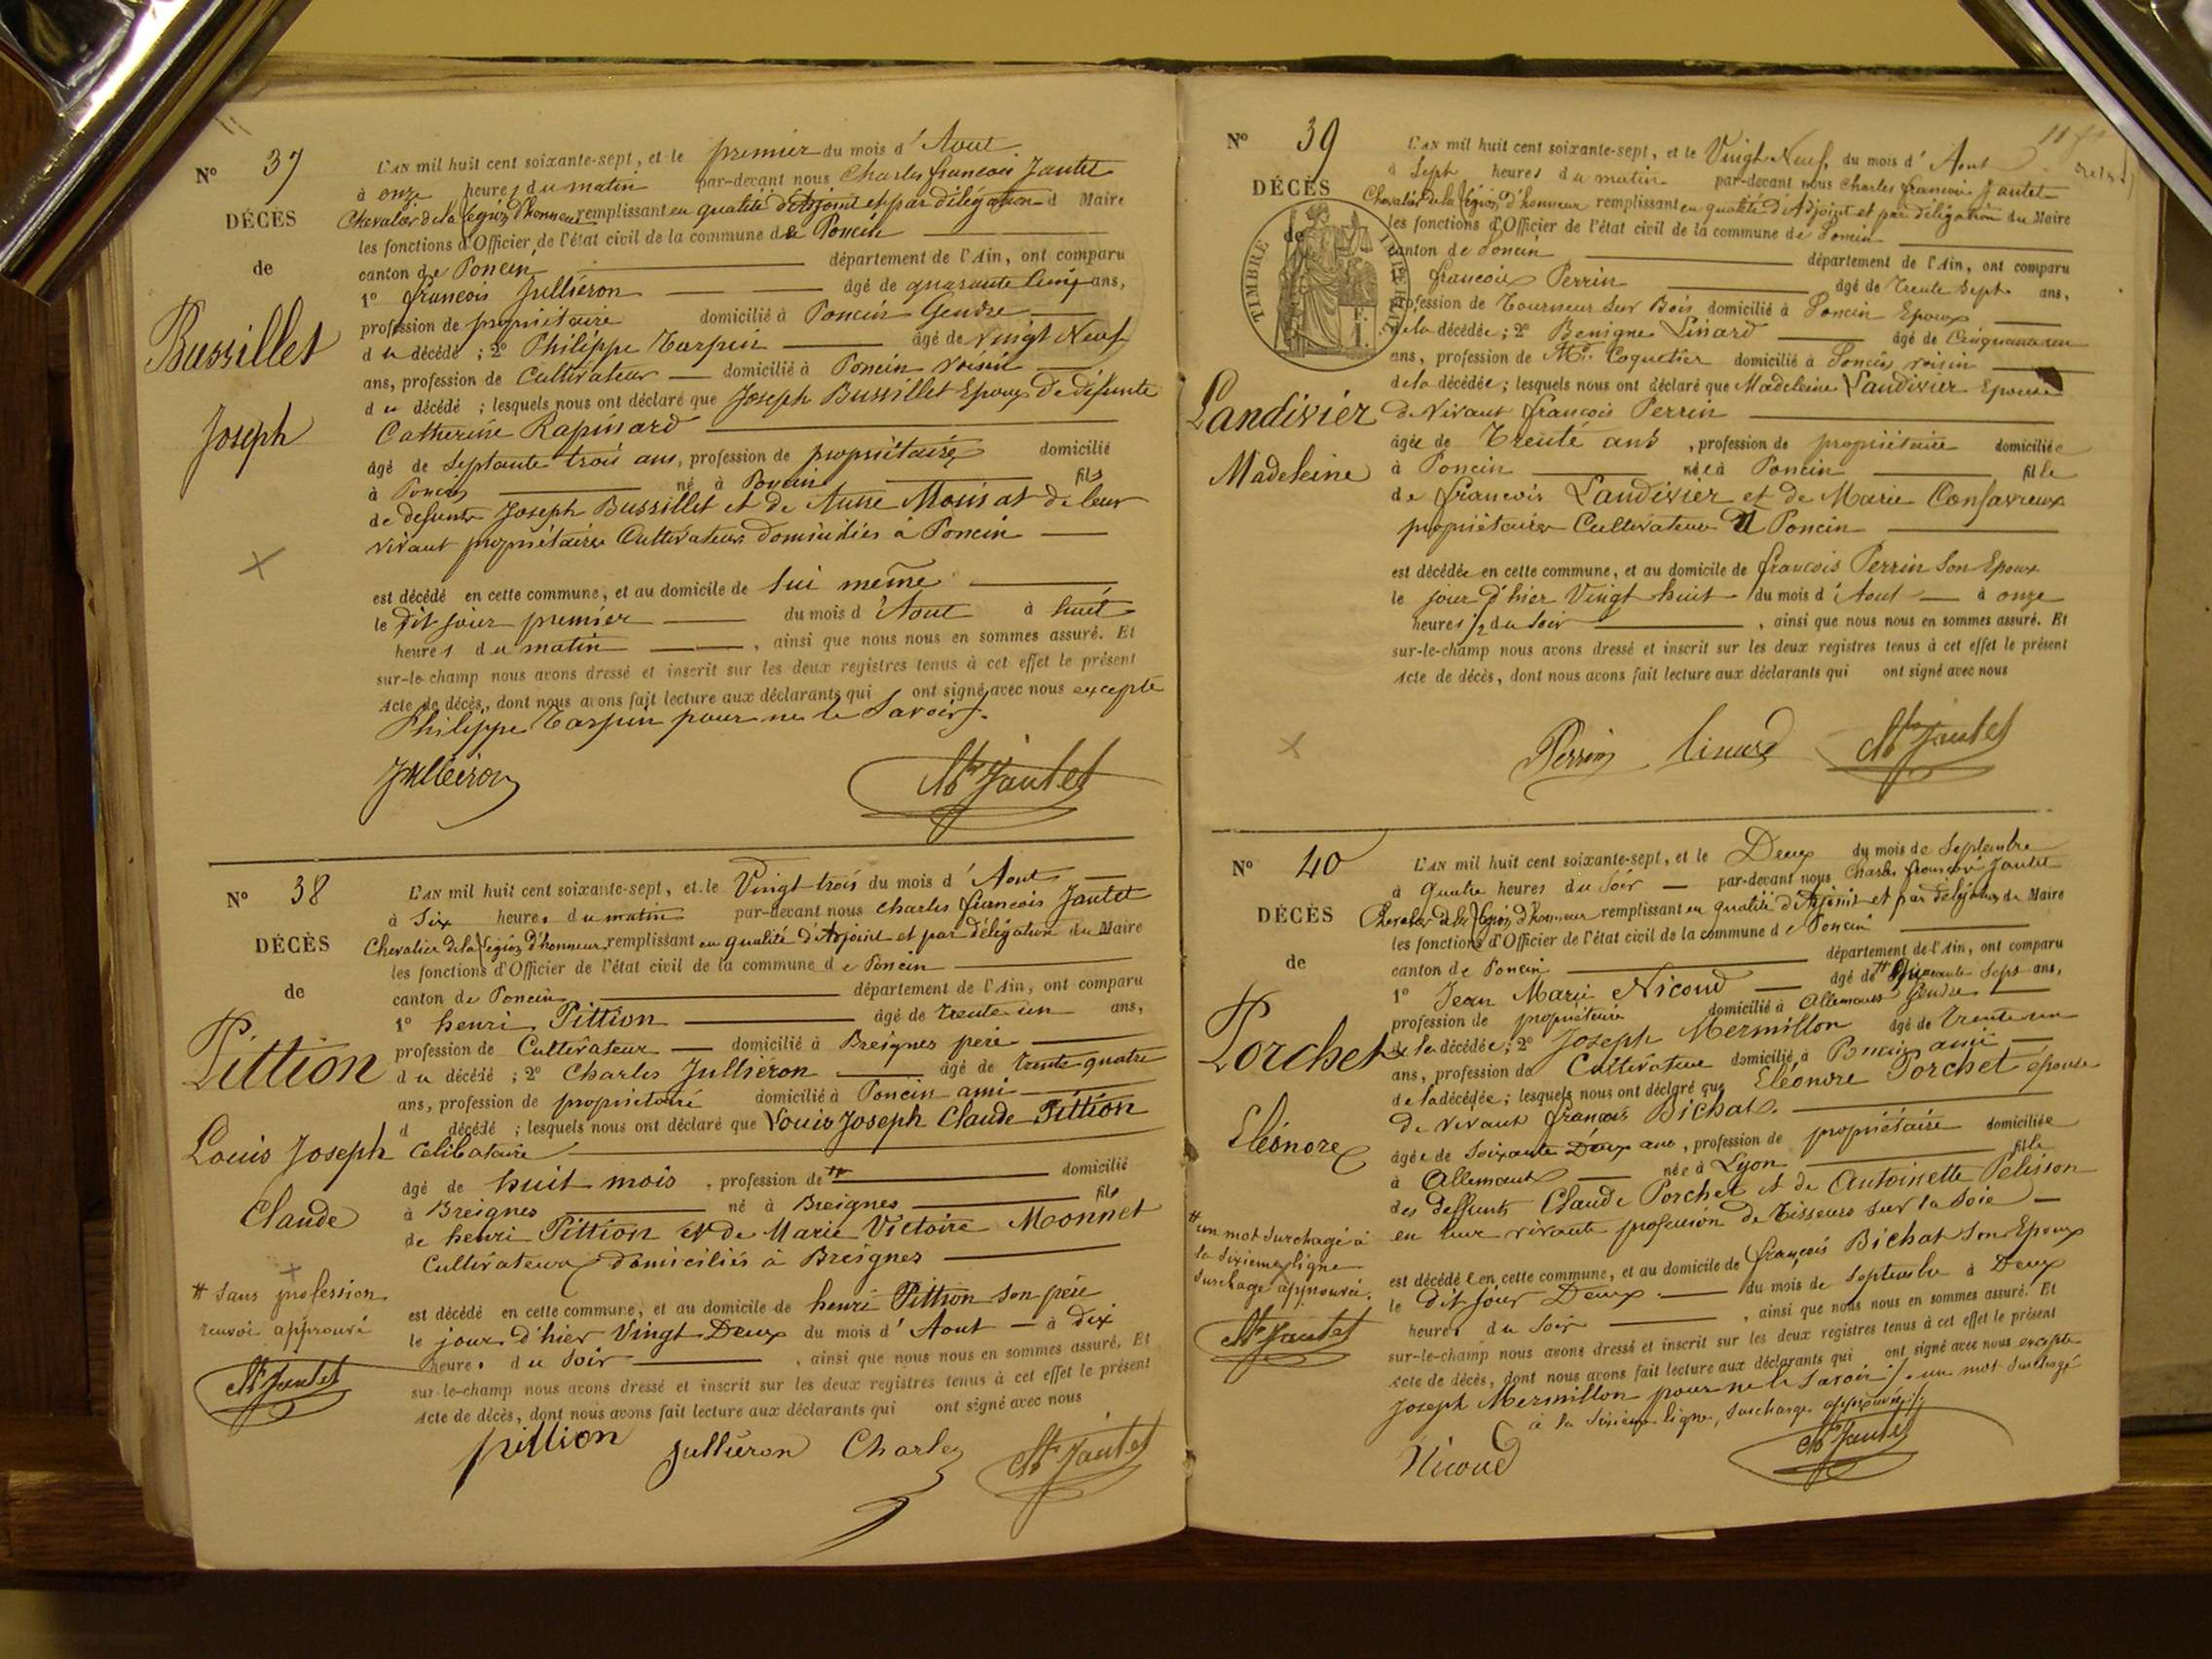 Nº 37
DÉCÈS
de
Bussillet
Joseph
L'AN mil huit cent soixante-sept, et le premier du mois d'Aout
à onze heures du matin par-devant nous Charles francois Jantet
Chevalier de la légion d'honneur remplissant en qualité d'Adjoint et par délégation d Maire
les fonctions d'Officier de l'état civil de la commune de Poncin
canton de Poncin département de l'Ain, ont comparu
1º francois Jullieron âgé de quarante Cinq ans,
profession de propriétaire domicilié à Poncin Gendre
du décédé ; 2º Philippe Tarpin âgé de vingt Neuf
ans, profession de Cultivateur domicilié à Poncin voisin
du décédé ; lesquels nous ont déclaré que Joseph Bussillet Epoux de défunte
Catherine Rapinard
âgé de Septante trois ans, profession de propriétaire domicilié
à Poncin né à Poncin fils
de defunts Joseph Bussillet et de Anne Moisat de leur
vivant propriétaires Cultivateurs domiciliés à Poncin
est décédé en cette commune, et au domicile de lui même
le dit jour premier du mois d'Aout à huit
heures du matin , ainsi que nous nous en sommes assuré. Et
sur-le-champ nous avons dressé et inscrit sur les deux registres tenus à cet effet le présent
Acte de décès, dont nous avons fait lecture aux déclarants qui ont signé avec nous excepté
Philippe Tarpin pour ne le Savoir.
Jullieron Ch Jantet
Nº 38
DÉCÈS
de
Pittion
Louis Joseph
Claude
# Sans profession
renvoi approuvé
Ch Jantet
L'AN mil huit cent soixante-sept, et le Vingt trois du mois d'Aout
à Six heures du matin par-devant nous Charles francois Jantet
Chevalier de la légion d'honneur remplissant en qualité d'Adjoint et par délégation du Maire
les fonctions d'Officier de l'état civil de la commune de Poncin
canton de Poncin département de l'Ain, ont comparu
1º henri Pittion âgé de trente un ans,
profession de Cultivateur domicilié à Breignes père
du décédé ; 2º Charles Jullieron âgé de trente quatre
ans, profession de propriétaire domicilié à Poncin ami
d décédé ; lesquels nous ont déclaré que Louis Joseph Claude Pittion
Célibataire
âgé de huit mois , profession de # domicilié
à Breignes né à Breignes fils
de henri Pittion et de Marie Victoire Monnet
Cultivateurs domiciliés à Breignes
est décédé en cette commune, et au domicile de henri Pittion son père
le jour d'hier Vingt Deux du mois d'Aout à dix
heures du Soir , ainsi que nous nous en sommes assuré. Et
sur-le-champ nous avons dressé et inscrit sur les deux registres tenus à cet effet le présent
Acte de décès, dont nous avons fait lecture aux déclarants qui ont signé avec nous
pittion Jullieron Charles Ch Jantet
Nº 39
DÉCÈS
de
TIMBRE IMPÉRIAL
Landivier
Madeleine
L'AN mil huit cent soixante-sept, et le Vingt Neuf du mois d'Aout
à Sept heures du matin par-devant nous Charles francois Jantet
Chevalier de la légion d'honneur remplissant en qualité d'Adjoint et par délégation du Maire
les fonctions d'Officier de l'état civil de la commune de Poncin
canton de Poncin département de l'Ain, ont comparu
francois Perrin âgé de trente Sept ans,
profession de Tourneur sur Bois domicilié à Poncin Epoux
de la décédée ; 2º Benigne Linard âgé de Cinquante un
ans, profession de Md Coquetier domicilié à Poncin voisin
de la décédée ; lesquels nous ont déclaré que Madeleine Landivier Epouse
de Vivant francois Perrin
âgée de Trente ans , profession de propriétaire domiciliée
à Poncin née à Poncin fille
de francois Landivier et de Marie Consavreux
propriétaires Cultivateurs à Poncin
est décédée en cette commune, et au domicile de francois Perrin Son Epoux
le jour d'hier Vingt huit du mois d'Aout à onze
heures 1/2 du Soir , ainsi que nous nous en sommes assuré. Et
sur-le-champ nous avons dressé et inscrit sur les deux registres tenus à cet effet le présent
Acte de décès, dont nous avons fait lecture aux déclarants qui ont signé avec nous
Perrin Linard Ch Jantet
Nº 40
DÉCÈS
de
Porchet
Eléonore
# un mot surchagé à
la Sixieme ligne
Surchage approuvée.
Ch Jantet
L'AN mil huit cent soixante-sept, et le Deux du mois de Septembre
à Quatre heures du Soir par-devant nous Charles francois Jantet
Chevalier de la légion d'honneur remplissant en qualité d'Adjoint et par délégation du Maire
les fonctions d'Officier de l'état civil de la commune de Poncin
canton de Poncin département de l'Ain, ont comparu
1º Jean Marie Nicoud âgé de # Sept ans,
profession de propriétaire domicilié à Allement Gendre
de la décédée ; 2º Joseph Mermillon âgé de trente un
ans, profession de Cultivateur domicilié à Poncin ami
de la décédée ; lesquels nous ont déclaré que Eléonore Porchet épouse
de vivant françois Bichat.
âgée de Soixante Deux ans , profession de propriétaire domiciliée
à Allement née à Lyon fille
des deffunts Claude Porchet et de Antoinette Pelisson
en leur vivants profession de Tisseurs sur la Soie
est décédée en cette commune, et au domicile de françois Bichat Son Epoux
le dit jour Deux du mois de Septembre à Deux
heures du Soir , ainsi que nous nous en sommes assuré. Et
sur-le-champ nous avons dressé et inscrit sur les deux registres tenus à cet effet le présent
Acte de décès, dont nous avons fait lecture aux déclarants qui ont signé avec nous excepté
Joseph Mermillon pour ne le Savoir /. un mot Surchagé
à la Sixieme ligne, Surcharge approuvée //
Nicoud Ch Jantet